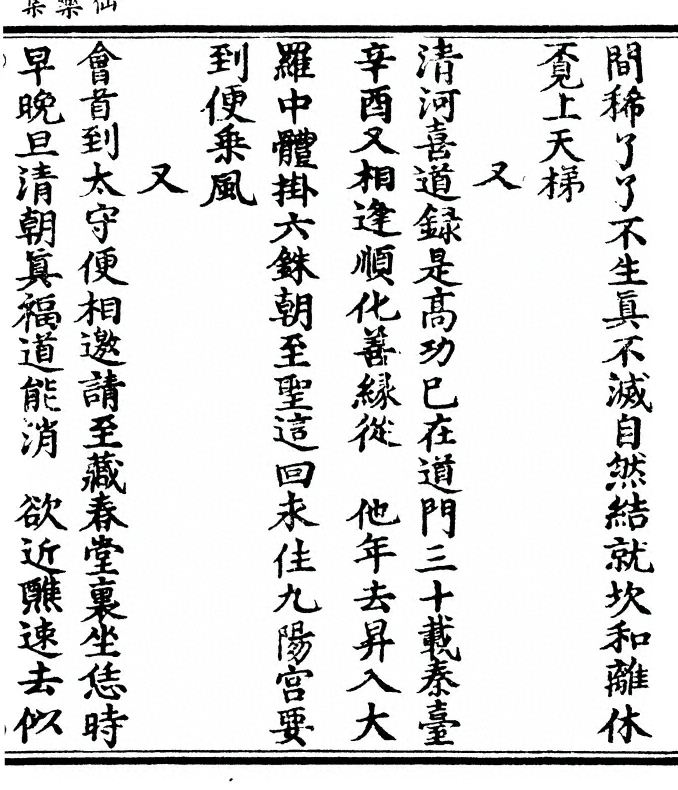 間稀了了不生真不滅自然結就坎和離休
覔上天梯
又
清河喜道録是髙功巳在道門三十載秦臺
辛酉又相逢順化善緣從　他年去昇入大
羅中體掛六銖朝至聖這回永住九陽宫要
到便乗風
又
會首到太守便相邀請至藏春堂裏坐恁時
早晚旦清朝真福道能消　欲近醮速去似